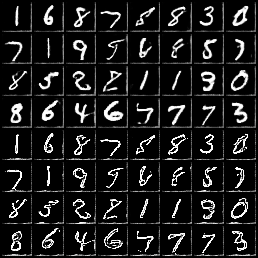 1 6 8 7 8 8 3 8
7 1 9 5 6 8 5 3
8 5 2 8 1 1 3 0
8 6 4 6 7 7 7 3
1 6 8 7 8 8 3 8
7 1 9 5 6 8 5 3
8 5 2 8 1 1 3 0
8 6 4 6 7 7 7 3